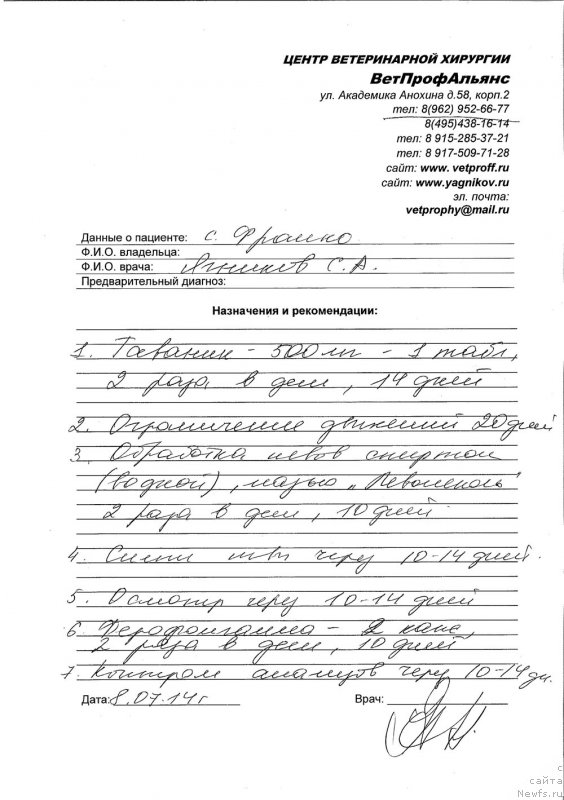 ЦЕНТР ВЕТЕРИНАРНОЙ ХИРУРГИИ
ВетПрофАльянс
ул. Академика Анохина д.58, корп.2
тел: 8(962) 952-66-77
8(495)438-16-14
тел: 8 915-285-37-21
тел: 8 917-509-71-28
сайт: www. vetproff.ru
сайт: www.yagnikov.ru
эл. почта:
vetprophy@mail.ru
Данные о пациенте: с. Франко
Ф.И.О. владельца:
Ф.И.О. врача: Ягников С.А.
Предварительный диагноз:
Назначения и рекомендации:
1. Таваник - 500 мг - 1 табл,
2 раза в день, 14 дней
2. Ограничение движений 20 дней
3. Обработка швов спиртом
(водкой), мазью „Левомеколь"
2 раза в день, 10 дней.
4. Снять швы через 10-14 дней.
5. Осмотр через 10-14 дней
6. - 2 капс,
2 раза в день, 10 дней
7. Контроль анализов через 10-14 дн.
Дата: 8.07.14г Врач:
с
сайта
Newfs.ru